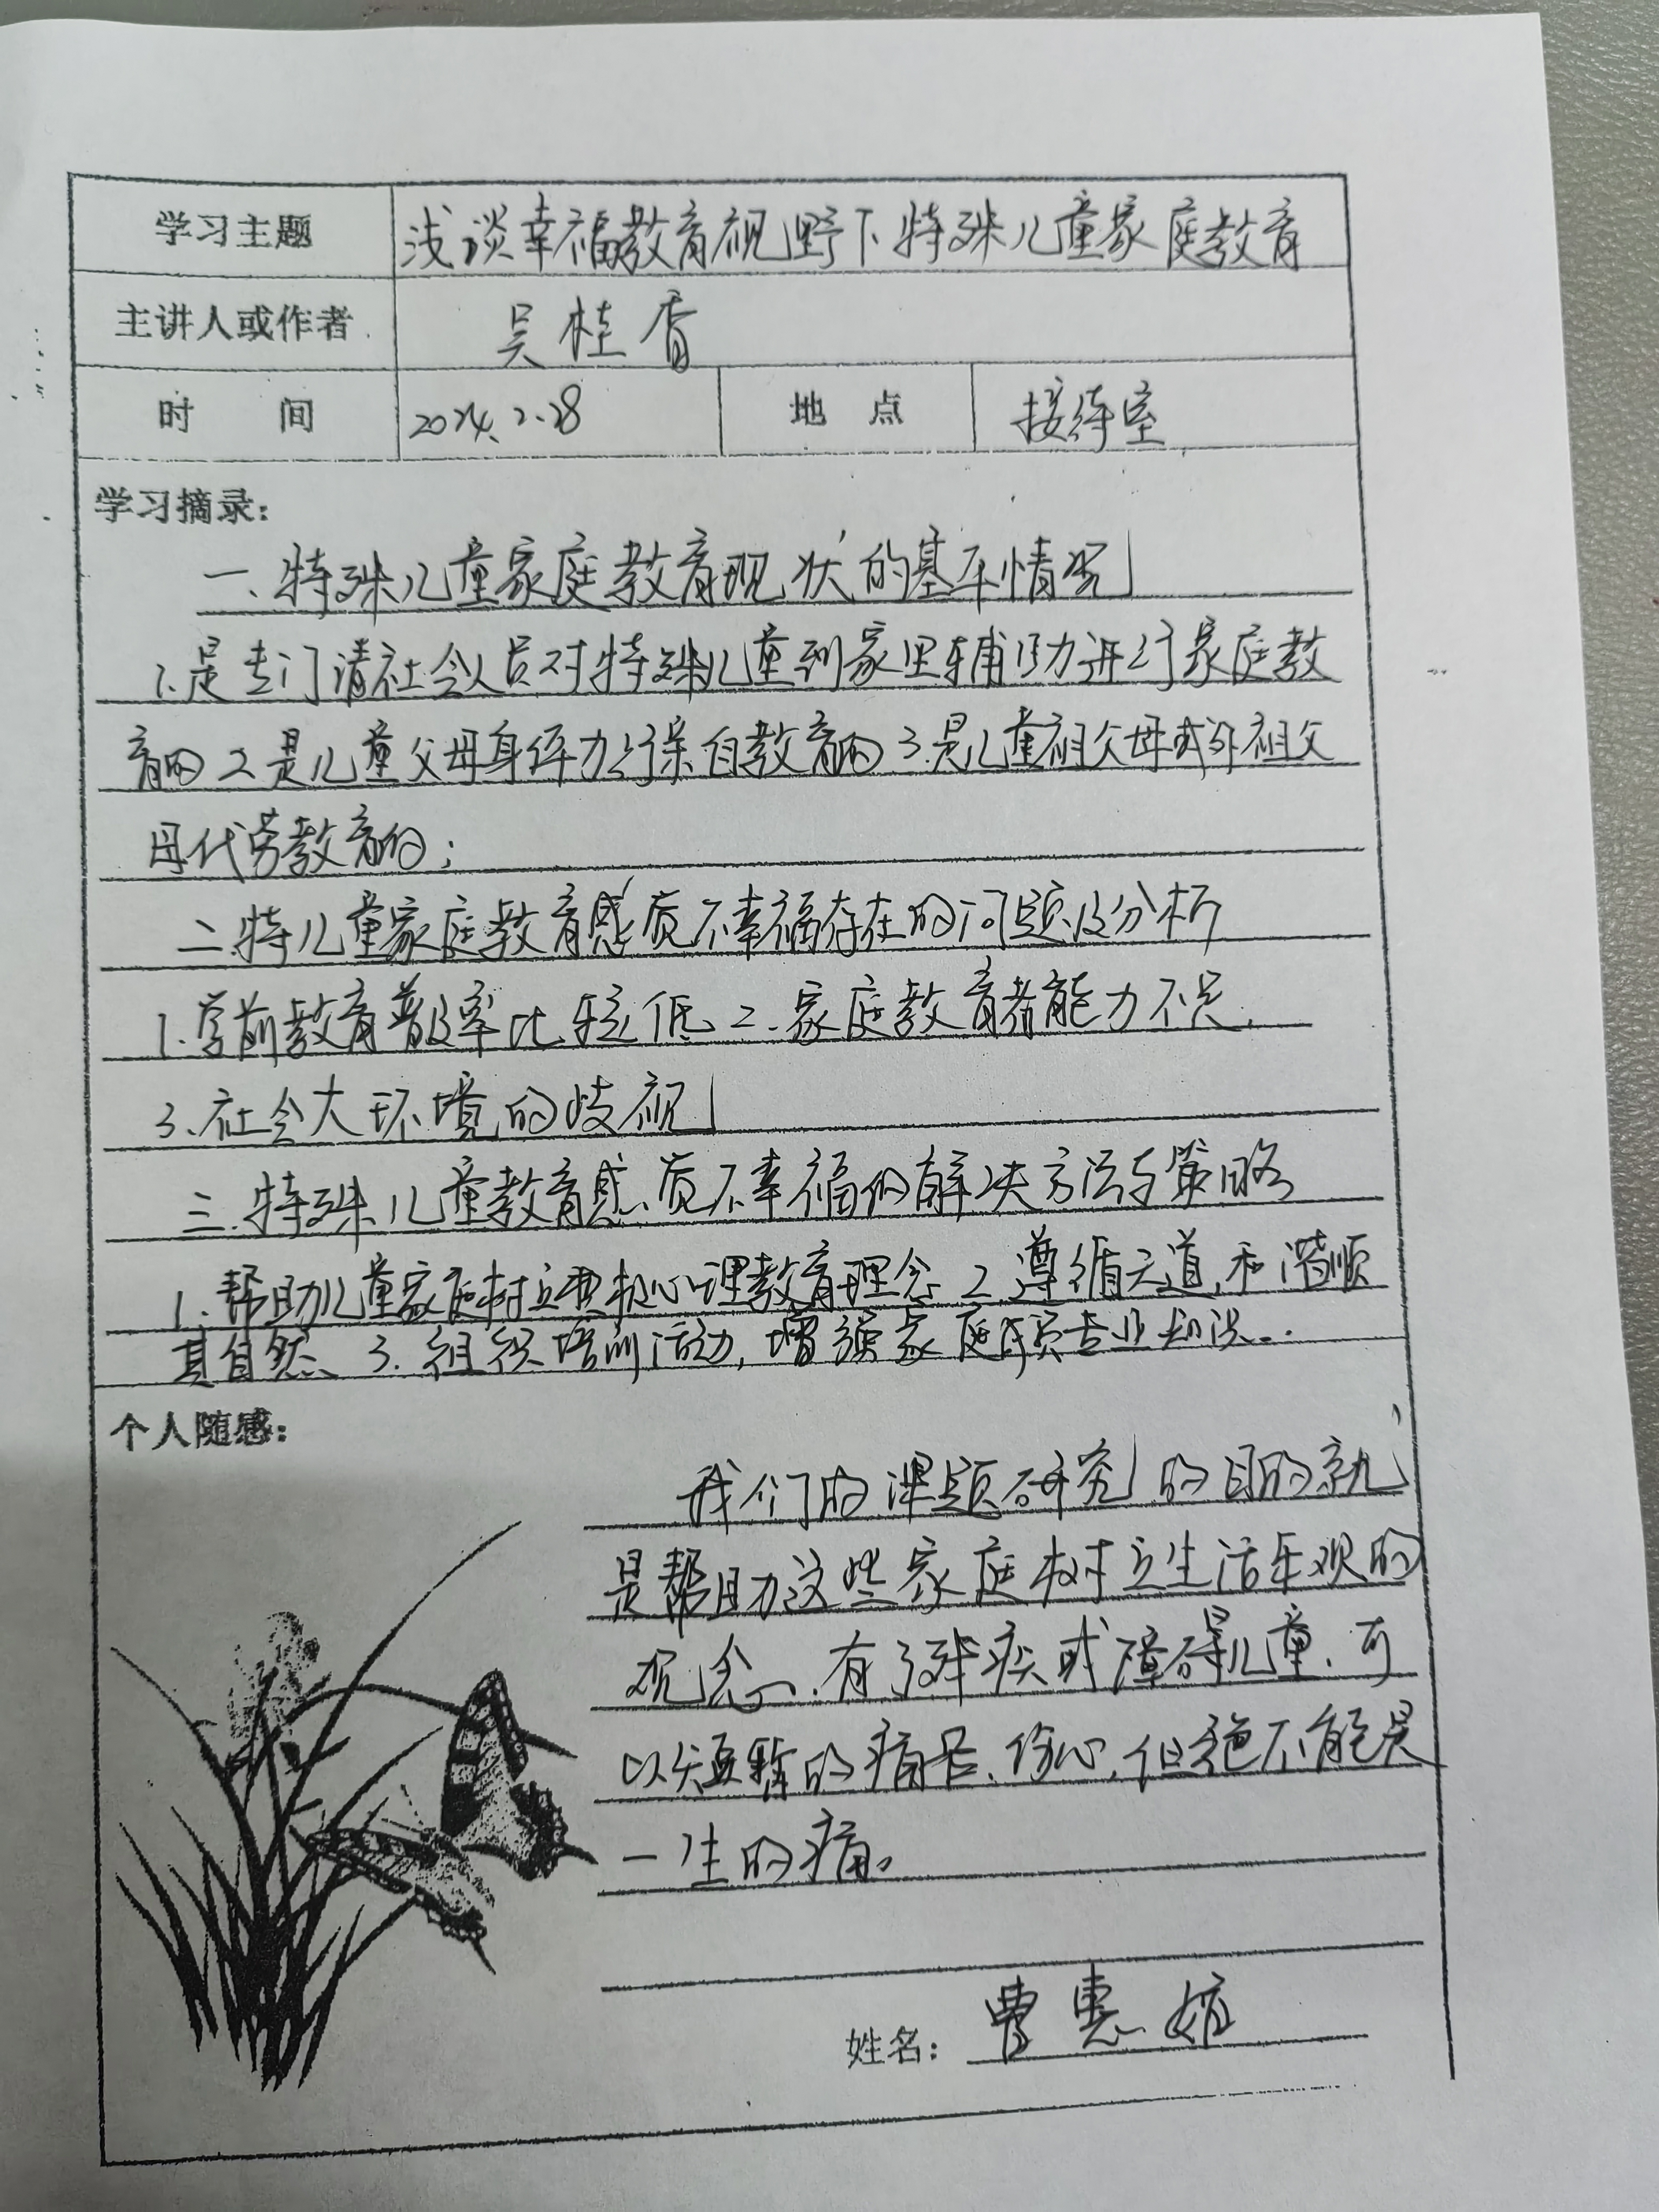 学习主题 浅谈幸福教育视野下特殊儿童家庭教育
主讲人或作者 吴桂香
时 间 2024.2.28 地 点 接待室
学习摘录：
一、特殊儿童家庭教育现状的基本情况
1.是专门请社会人员对特殊儿童到家里辅助进行家庭教
育的 2.是儿童父母身体力行亲自教育的 3.是儿童祖父母或外祖父
母代劳教育的；
二.特儿童家庭教育感质不幸福存在的问题及分析
1.学前教育普及率比较低 2.家庭教育者能力不足.
3.社会大环境的歧视
三.特殊儿童教育感质不幸福的解决方法与策略
1.帮助儿童家庭树立 心理教育理念 2.遵循天道,和谐顺
其自然、3.组织培训活动,增强家庭 专业知识...
个人随感：
我们的课题研究的目的就
是帮助这些家庭树立生活乐观的
观念、有了残疾或障碍儿童.可
以短暂的痛苦、伤心,但绝不能是
一生的痛。
姓名： 曹惠